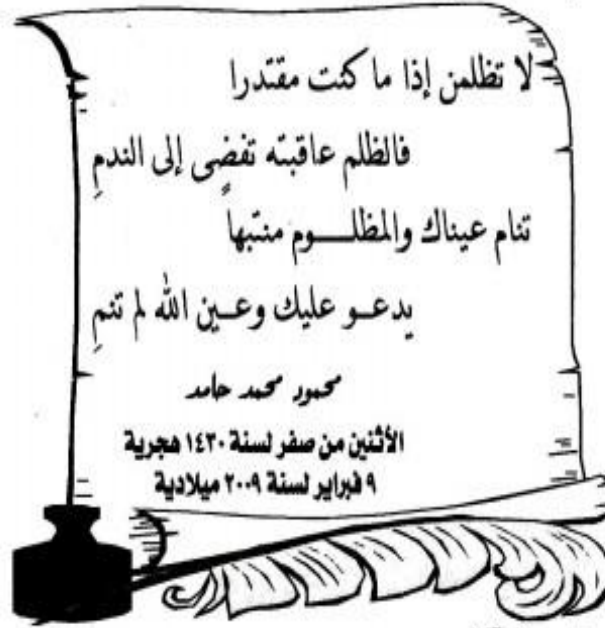 لا تظلمن إذا ما كنت مقتدرا
فالظلم عاقبته تفضى إلى الندمِ
تنام عيناك والمظلـــوم منتبهاً
يدعــو عليك وعــين الله لم تنمِ
محمود محمد حامد
الأثنين من صفر لسنة ١٤٣٠ هجرية
٩ فبراير لسنة ٢٠٠٩ ميلادية